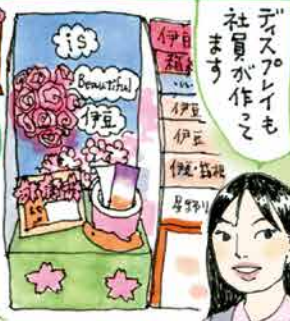 ディスプレイも
社員が作って
ます
is
Beautiful
伊豆
伊豆
伊豆
伊豆・箱根